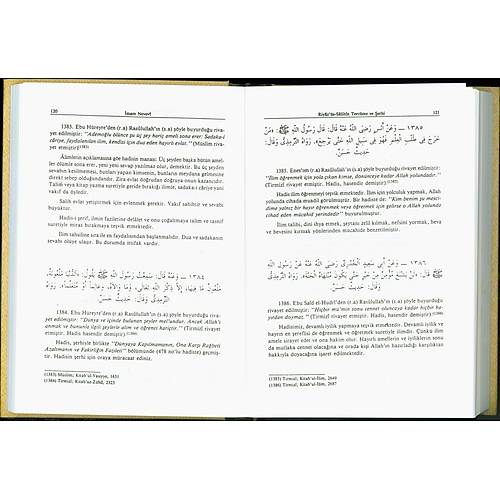 120 İmam Nevevî
1383. Ebu Hüreyre'den (r.a) Rasûlullah'ın (s.a) şöyle buyurduğu riva-
yet edilmiştir: "Ademoğlu ölünce şu üç şey hariç ameli sona erer: Sadaka-i
câriye, faydalanılan ilim, kendisi için dua eden hayırlı evlat." (Müslim riva-
yet etmiştir)(1383)
Âlimlerin açıklamasına göre hadisin manası: Üç şeyden başka bütün amel-
ler ölümle sona erer, yeni yeni sevap yazılmaz olur, demektir. Bu üç şeyden
sevabın kesilmemesi, bunları yapan kimsenin, bunların meydana gelmesine
direkt sebep olduğundandır. Zira evlat doğrudan doğruya onun kazancıdır.
Talim veya kitap yazma suretiyle geride bıraktığı ilimle, sadaka-i câriye yani
vakıf da böyledir.
Salih evlat yetiştirmek için evlenmek gerekir. Vakıf sahihtir ve sevabı
büyüktür.
Hadis-i şerif, ilmin fazilerine delâlet ve onu çoğaltmaya talim ve tasnif
suretiyle miras bırakmaya teşvik etmektedir.
İlim tahsiline sıra ile en faydalısından başlanmalıdır. Dua ve sadakanın
sevabı ölüye ulaşır. Bu durumda ittifak vardır.
١٣٨٤ ــ وَعَنْهُ قَالَ: سَمِعْتُ رَسُولَ اللَّهِ ﷺ يَقُولُ: «الدُّنْيَا مَلْعُونَةٌ،
مَلْعُونٌ مَا فِيهَا، إِلَّا ذِكْرَ اللَّهِ تَعَالَى، وَمَا وَالَاهُ، وَعَالِماً، أَوْ مُتَعَلِّماً». رَوَاهُ
التِّرْمِذِيُّ وَقَالَ: حَدِيثٌ حَسَنٌ
1384. Ebu Hüreyre'den (r.a) Rasûlullah'ın (s.a) şöyle buyurduğu rivayet
edilmiştir: "Dünya ve içinde bulunan şeyler mel'undur. Ancak Allah'ı
anmak ve bununla ilgili şeylerle alim ve öğrenci hariçtir." (Tirmizî rivayet
etmiştir. Hadis, hasendir demiştir)(1384)
Hadis, şerhiyle birlikte "Dünyaya Kapılmamanın, Ona Karşı Rağbeti
Azaltmanın ve Fakirliğin Fazileti" bölümünde (478 no'lu hadiste) geçmiş-
tir. Hadisin şerhi için oraya müracaat ediniz.
(1383) Müslim; Kitab'ul-Vasıyye, 1631
(1384) Tirmizî, Kitab'uz-Zühd, 2323
Riyâz'üs-Sâlihîn Tercüme ve Şerhi 121
١٣٨٥ ــ وَعَنْ أَنَسٍ رَضِيَ اللَّهُ عَنْهُ قَالَ: قَالَ رَسُولُ اللَّهِ ﷺ: «مَنْ
خَرَجَ فِي طَلَبِ الْعِلْمِ فَهُوَ فِي سَبِيلِ اللَّهِ حَتَّى يَرْجِعَ». رَوَاهُ التِّرْمِذِيُّ وَقَالَ:
حَدِيثٌ حَسَنٌ
1385. Enes'den (r.a) Rasûlullah'ın (s.a) şöyle buyurduğu rivayet edilmiştir:
"İlim öğrenmek için yola çıkan kimse, dönünceye kadar Allah yolundadır."
(Tirmizî rivayet etmiştir. Hadis, hasendir demiştir)(1385)
Hadis ilim öğrenmeyi teşvik etmektedir. İlim için yolculuk yapmak, Allah
yolunda cihada muadil görülmüştür. Bir hadiste de: "Kim benim şu mesci-
dime yalnız bir hayır öğrenmek veya öğretmek için gelirse o Allah yolunda
cihad eden mücahid yerindedir" buyurulmuştur.
İlim talibi, dini ihya etmek, şeytanı zelil kılmak, nefsini yormak, heva
ve hevesini kırmak yönlerinden mücahide benzetilmiştir.
١٣٨٦ ــ وَعَنْ أَبِي سَعِيدٍ الْخُدْرِيِّ رَضِيَ اللَّهُ عَنْهُ عَنْ رَسُولِ اللَّهِ ﷺ
قَالَ: «لَنْ يَشْبَعَ مُؤْمِنٌ مِنْ خَيْرٍ حَتَّى يَكُونَ مُنْتَهَاهُ الْجَنَّةَ». رَوَاهُ التِّرْمِذِيُّ،
وَقَالَ: حَدِيثٌ حَسَنٌ
1386. Ebu Saîd el-Hudrî'den (r.a) Rasûlullah'ın (s.a) şöyle buyurduğu
rivayet edilmiştir: "Hiçbir mü'min sonu cennet oluncaya kadar hiçbir ha-
yırdan doymaz." (Tirmizî rivayet etmiştir. Hadis, hasendir demiştir)(1386)
Hadisimiz, devamlı iyilik yapmaya teşvik etmektedir. Devamlı iyilik ve
hayrın en şereflisi de öğrenmek ve öğretmekle yapılandır. Çünkü ilim daima
amele sirayet eder ve ona hakim olur. Hayırlı amellerin ve iyiliklerin sonu
da mutlaka cennet olacağına ve orada kişi Allah'ın hazırladığı karşılıktan
hakkıyla doyacağına işaret edilmektedir.
(1385) Tirmizî; Kitab'ul-İlim, 2649
(1386) Tirmizî; Kitab'ul-İlim, 2687